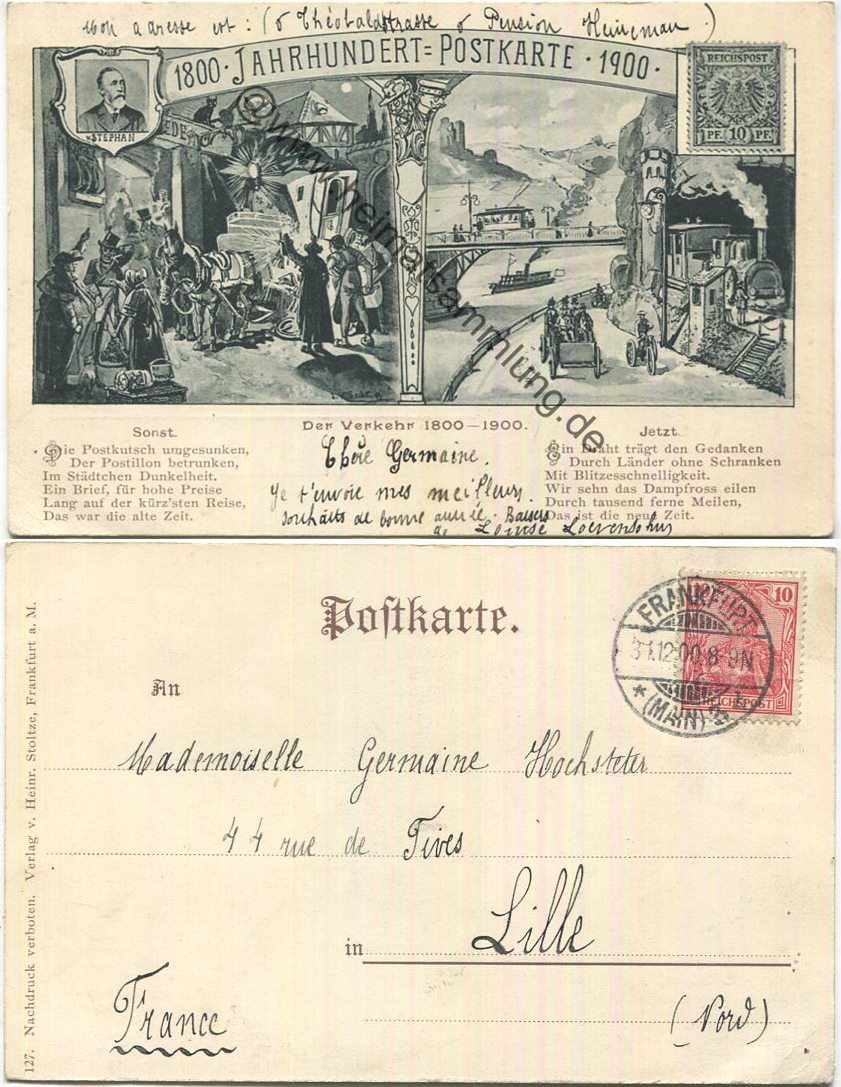 Mon adresse est : (6 Théobaldstrasse 6 Pension Heineman)
1800 · JAHRHUNDERT=POSTKARTE · 1900 ·
v STEPHAN
REICHSPOST
PF. 10 PF.
@www.heimatsammlung.de
Der Verkehr 1800—1900.
Sonst.
Die Postkutsch umgesunken,
Der Postillon betrunken,
Im Städtchen Dunkelheit.
Ein Brief, für hohe Preise
Lang auf der kürz'sten Reise,
Das war die alte Zeit.
Chère Germaine.
Je t'envoie mes meilleurs
souhaits de bonne année. Baisers
de Louise Loevensohn
Jetzt.
Ein Draht trägt den Gedanken
Durch Länder ohne Schranken
Mit Blitzesschnelligkeit.
Wir sehn das Dampfross eilen
Durch tausend ferne Meilen,
Das ist die neue Zeit.
Postkarte.
10
REICHSPOST
FRANKFURT
31.12.00.8-9N
* (MAIN)
An
Mademoiselle Germaine Hochsteter
44 rue de Fives
in Lille
France
(Nord)
127. Nachdruck verboten. Verlag v. Heinr. Stoltze, Frankfurt a. M.